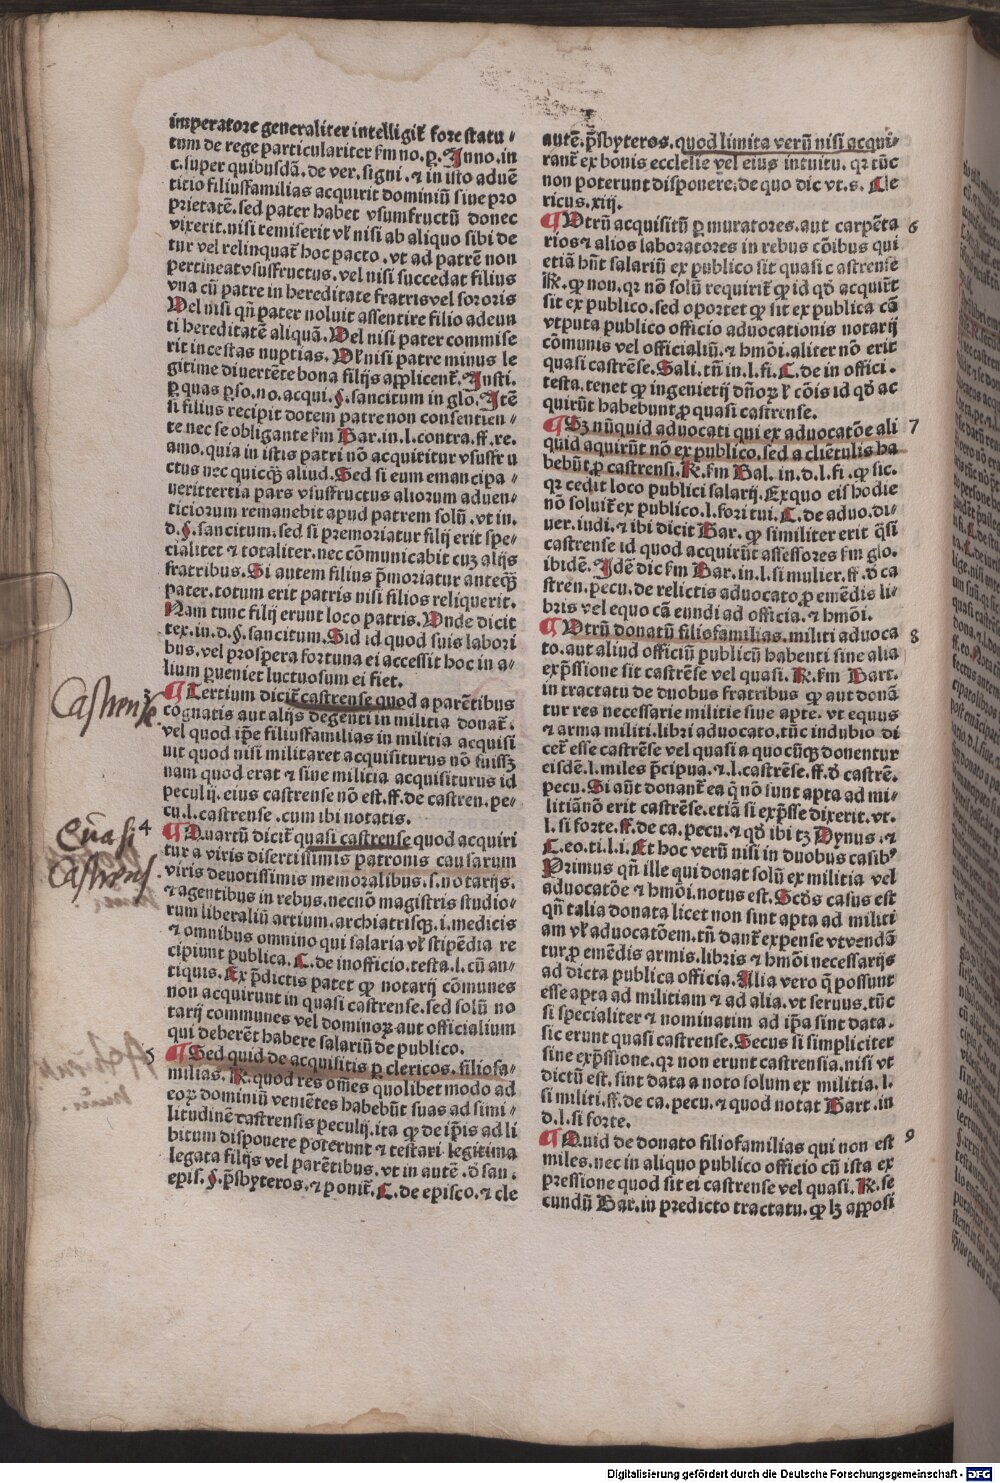 imperatore generaliter intelligit̄ fore statu-
tum de rege particulariter ẜm no. ꝑ. Inno. in
c. super quibusdā. de ver. signi. ⁊ in isto aduē
titio filiusfamilias acquirit dominiū siue pro
prietatē. sed pater habet vsumfructū donec
vixerit. nisi remiserit vl̓ nisi ab aliquo sibi de
tur vel relinquat̄ hoc pacto. vt ad patrē non
pertineat vsusfructus. vel nisi succedat filius
vna cū patre in hereditate fratris vel sororis
Vel nisi qn̄ pater noluit assentire filio adeun
ti hereditatē aliquā. Vel nisi pater commise
rit incestas nuptias. Vl̓ nisi patre minus le
gitime diuertēte bona filijs applicent̄. Insti.
ꝑ quas ꝑso. no. acqui. §. sancitum in glo. Itē
si filius recipit dotem patre non consentien-
te nec se obligante ẜm Bar. in. l. contra. ff. re.
amo. quia in istis patri nō acquiritur vsusfru
ctus nec quicq̄ aliud. Sed si eum emancipa-
uerit tertia pars vsusfructus aliorum aduen-
ticiorum remanebit apud patrem solū. vt in.
d. §. sancitum. sed si premoriatur filij erit spe-
cialiter ⁊ totaliter. nec cōmunicabit cuꝫ alijs
fratribus. Si autem filius p̄moriatur anteq̄ꝫ
pater. totum erit patris nisi filios reliquerit.
Nam tunc filij erunt loco patris. Vnde dicit
tex. in. d. §. sancitum. Sid id quod suis labori
bus. vel prospera fortuna ei accessit hoc in a-
lium ꝑueniet luctuosum ei fiet.
¶ Tertium dicit̄ castrense quod a parētibus
Castrense.
cognatis aut alijs degenti in militia donat̄.
vel quod ip̄e filiusfamilias in militia acquisi
uit quod nisi militaret acquisiturus nō fuissꝫ
nam quod erat ⁊ sine militia acquisiturus id
peculij. eius castrense nō est. ff. de castren. pe-
cu. l. castrense. cum ibi notatis.
Quasi Castrens. 4
¶ Quartū dicit̄ quasi castrense quod acquiri
tur a viris disertissimis patronis causarum
viris deuotissimis memoralibus. s. notarijs.
⁊ agentibus in rebus. necnō magistris studio-
rum liberaliū artium. archiatrisqꝫ. i. medicis
⁊ omnibus omnino qui salaria vl̓ stipēdia re
cipiunt publica. C. de inofficio. testa. l. cū an-
tiquis. Ex p̄dictis patet ꝙ notarij cōmunes
non acquirunt in quasi castrense. sed solū no
tarij communes vel dominoꝝ aut officialium
qui deberēt habere salariū de publico.
5
¶ Sed quid de acquisitis ꝑ clericos. filiosfa-
milias. R. quod res om̄es quolibet modo ad
eoꝝ dominiū veniētes habebūt suas ad simi-
litudinē castrensis peculij. ita ꝙ de ip̄is ad li
bitum disponere poterunt ⁊ testari legitima
legata filijs vel parētibus. vt in autē. d̓ san.
epis. §. p̄sbyteros. ⁊ ponit̄. C. de episco. ⁊ cle
autē. p̄sbyteros. quod limita verū nisi acqui-
rant̄ ex bonis ecclesie vel eius intuitu. qꝛ tūc
non poterunt disponere. de quo dic vt. s. Cle
ricus. xiij.
¶ Vtrū acquisitū ꝑ muratores. aut carpēta 6
rios ⁊ alios laboratores in rebus cōibus qui
etiā hn̄t salariū ex publico sit quasi castrense
R. ꝙ non. qꝛ nō solū requirit̄ ꝙ id qd̓ acquirit̄
sit ex publico. sed oportet ꝙ sit ex publica cā
vtputa publico officio aduocationis notarij
cōmunis vel officialiū. ⁊ hmōi. aliter nō erit
quasi castrēse. Sali. tn̄ in. l. fi. C. de in offici.
testa. tenet ꝙ ingenierij dn̄oꝝ ⁊ cōis id qd̓ ac
quirūt habebunt ꝓ quasi castrense.
¶ Sꝫ nūquid aduocati qui ex aduocatōe ali 7
quid aquirūt nō ex publico. sed a cliētulis ha
bebūt ꝓ castrensi. R. ẜm Bal. in. d. l. fi. ꝙ sic.
qꝛ cedit loco publici salarij. Exquo eis hodie
nō soluit̄ ex publico. l. fori tui. C. de aduo. di-
uer. iudi. ⁊ ibi dicit Bar. ꝙ similiter erit q̄si
castrense id quod acquirūt assessores ẜm glo.
ibidē. Idē dic ẜm Bar. in. l. si mulier. ff. d̓ ca
stren. pecu. de relictis aduocato ꝓ emēdis li-
bris vel equo cā eundi ad officia. ⁊ hmōi.
¶ Vtrū donatū filiofamilias. militi aduoca 8
to. aut aliud officiū publicū habenti sine alia
exp̄ssione sit castrēse vel quasi. R. ẜm Bart.
in tractatu de duobus fratribus ꝙ aut donā
tur res necessarie militie siue apte. vt equus
⁊ arma militi. libri aduocato. tūc indubio di
cet̄ esse castrēse vel quasi a quocūqꝫ donentur
eisdē. l. miles p̄cipua. ⁊. l. castrēse. ff. d̓ castrē.
pecu. Si aūt donant̄ ea q̄ nō sunt apta ad mi-
litiā nō erit castrēse. etiā si exp̄sse dixerit. vt.
l. si forte. ff. de ca. pecu. ⁊ qd̓ ibi tꝫ Dynus. ⁊
C. eo. ti. l. i. Et hoc verū nisi in duobus casibꝰ
Primus qn̄ ille qui donat solū ex militia vel
aduocatōe ⁊ hmōi. notus est. Scd̓s casus est
qn̄ talia donata licet non sint apta ad militi
am vl̓ aduocatōem. tn̄ dant̄ expense vt vendā
tur. ꝓ emēdis armis. libris ⁊ hmōi necessarijs
ad dicta publica officia. Alia vero q̄ possunt
esse apta ad militiam ⁊ ad alia. vt seruus. tūc
si specialiter ⁊ nominatim ad ip̄a sint data.
sic erunt quasi castrense. Secus si simpliciter
sine exp̄ssione. qꝛ non erunt castrensia. nisi vt
dictū est. sint data a noto solum ex militia. l.
si militi. ff. de ca. pecu. ⁊ quod notat Bart. in
d. l. si forte.
¶ Quid de donato filiofamilias qui non est 9
miles. nec in aliquo publico officio cū ista ex
pressione quod sit ei castrense vel quasi. R. se
cundū Bar. in predicto tractatu. ꝙ lꝫ apposi
Digitalisierung gefördert durch die Deutsche Forschungsgemeinschaft - DFG